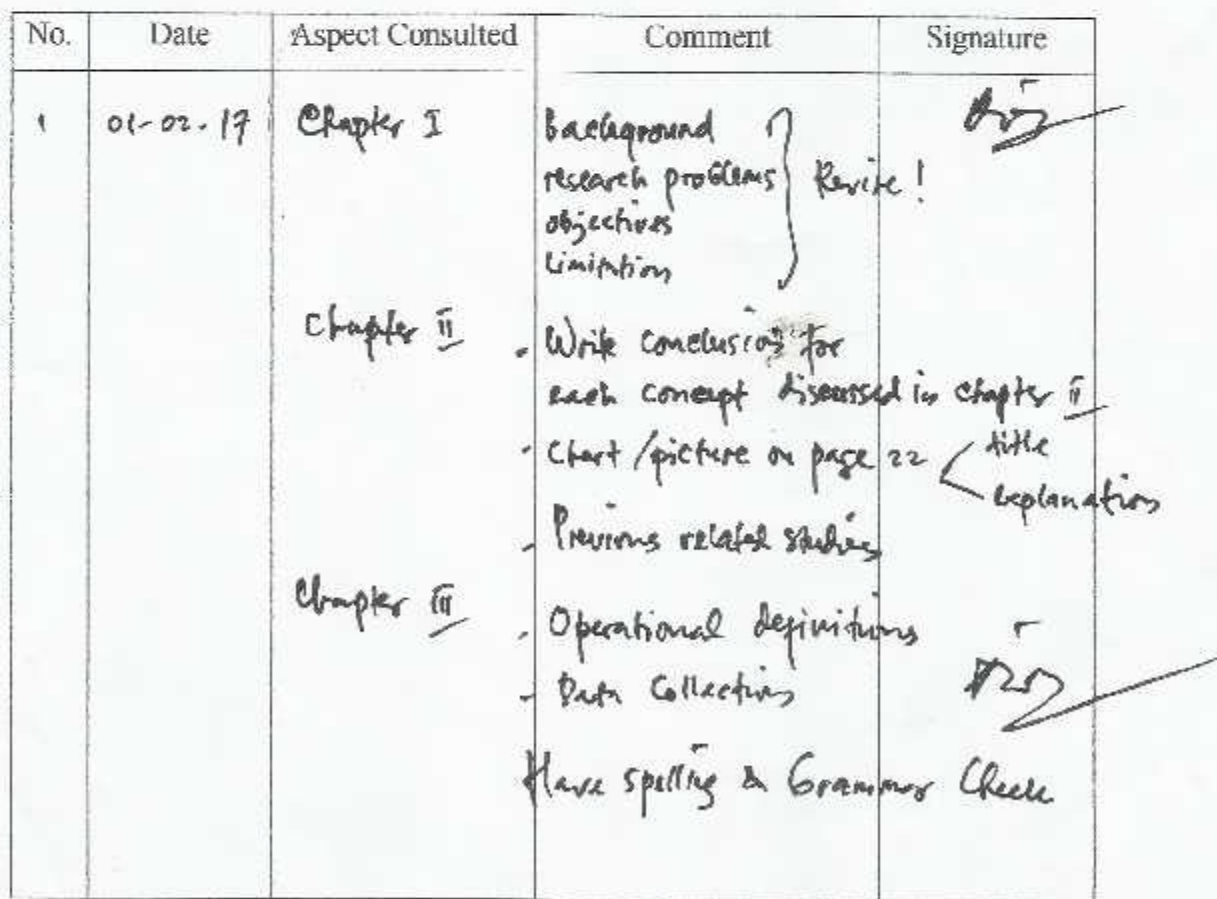 No. Date Aspect Consulted Comment Signature
1 01-02-17 Chapter I background
research problems Revise!
objectives
Limitation
Chapter II - Write conclusion for
each concept discussed in Chapter II
- Chart/picture on page 22 title
explanation
- Previous related studies
Chapter III
- Operational definitions
- Data Collection
Have spelling & Grammar Check